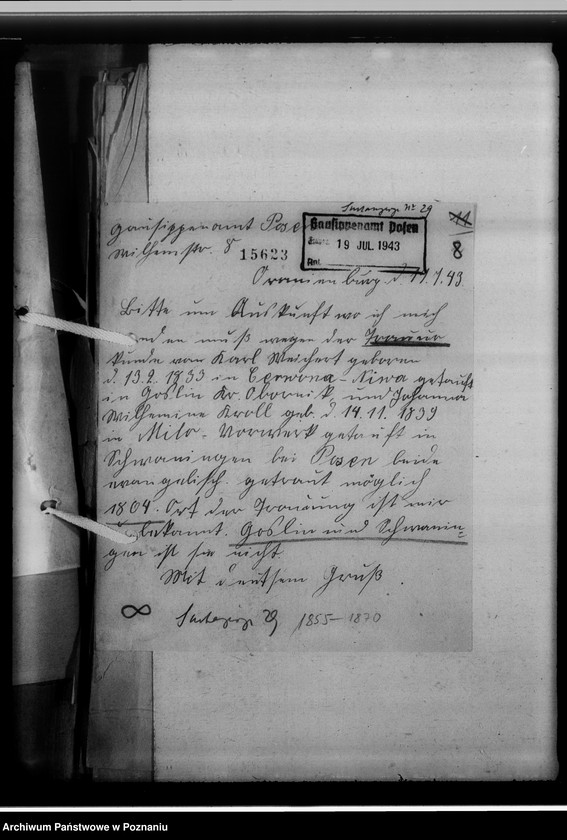 Suchanzeige Nr 29
Gausippenamt Posen
11
Gausippenamt Posen
Wilhelmstr. 8
15623
19 JUL 1943
8
Oranienburg d. 17.7.43.
Bitte um Auskunft wo ich mich
enden muß wegen der Trauur
kunde von Karl Weichert geboren
d. 13.2.1833 in Czerwona-Niwa getauft
in Goslin Kr. Obornik und Johanna
Wilhelmine Kroll geb. d. 14.11.1839
in Milo-Vorwerk getauft in
Schwaningen bei Posen beide
evangelisch. getraut möglich
1864. Ort der Trauung ist mir
unbekannt. Goslin und Schwanin=
gen ist sie nicht
Mit deutsem Gruß.
∞ Suchanzeige 29 1855-1870
Archiwum Państwowe w Poznaniu